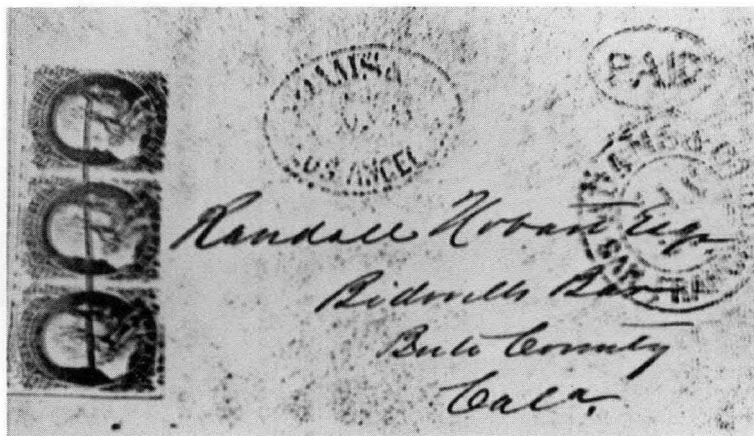 ADAMS & CO
LOS ANGEL
PAID
ADAMS & CO
SAN FRANCISCO
Randall Hobart Esqr
Bidwells Bar
Bute County
Cala.